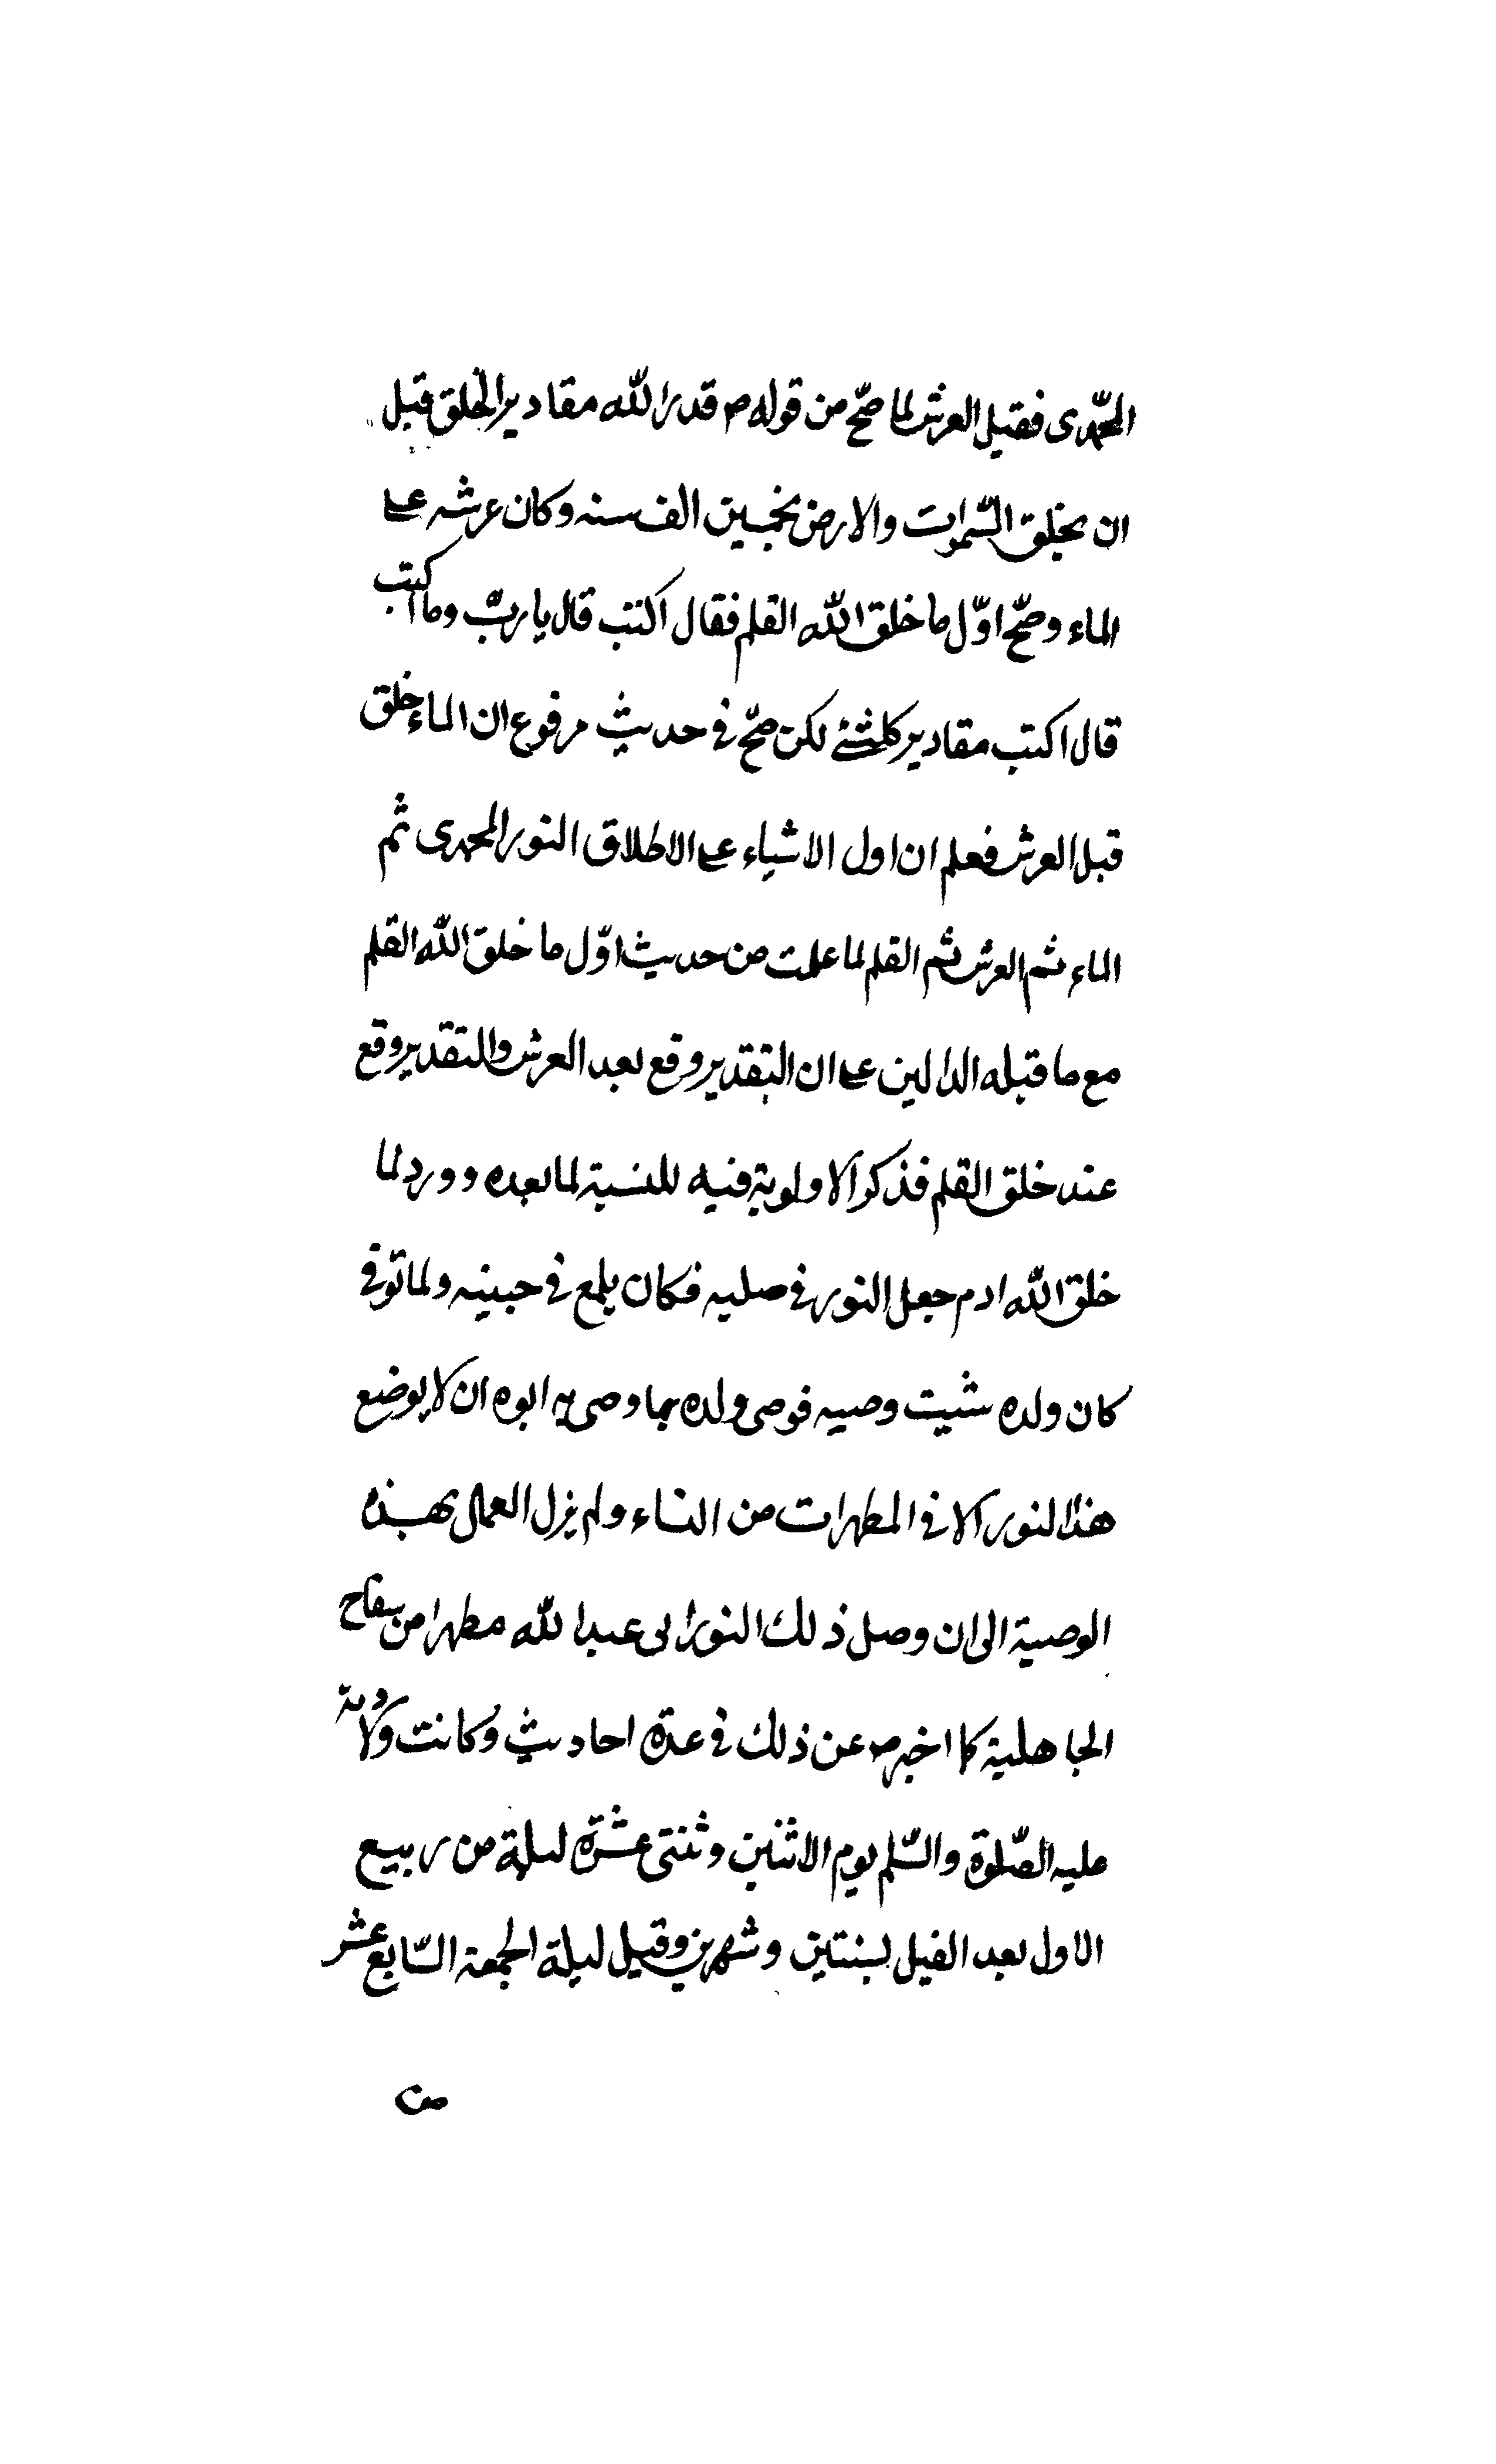 المحمّدى فقيل العرش لما صحّ من قوله ص قدر الله مقادير الخلق قبل
ان يخلق السّموات والارض بخمسين الف سنه وكان عرشه على
الماء وصحّ اوّل ما خلق الله القلم فقال اكتب قال يا ربّ وما اكتب
قال اكتب مقادير كلشئ لكن صحّ فى حديث مرفوع ان الماء خلق
قبل العرش فعلم ان اول الاشياء على الاطلاق النور المحمدى ثم
الماء ثم العرش ثم القلم لما علمت من حديث اوّل ما خلق الله القلم
مع ما قبله الدالين على ان التقدير وقع بعد العرش والتقدير وقع
عند خلق القلم فذكر الاولوية فيه للنسبة لما بعده وورد لما
خلق الله ادم جعل النور فى صلبه فكان يلمع فى جبينه ولما توفى
كان ولده شيت وصيه فوصى ولده بما وصى به ابوه ان لا يوضع
هذا النور الا فى المطهرات من النساء ولم يزل العمال بهذه
الوصية الى ان وصل ذلك النور الى عبد الله مطهرا من سفاح
الجاهلية كما اخبر ص عن ذلك فى عدة احاديث وكانت ولادته
عليه الصّلوة والسّلم يوم الاثنين وثنتى عشرة ليلة من ربيع
الاول بعد الفيل بسنتين وشهرين وقيل ليلة الجمعة السّابع عشر
من